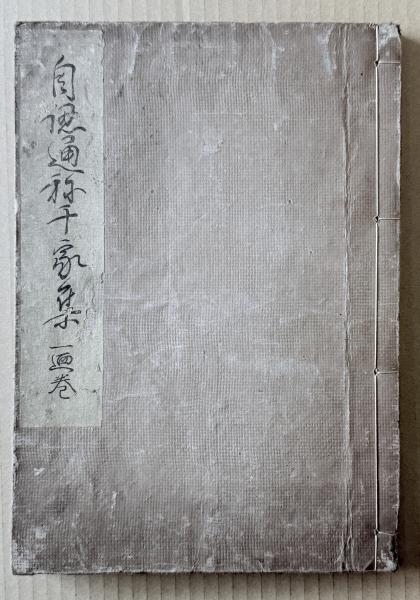 自認通称千家集 一画巻